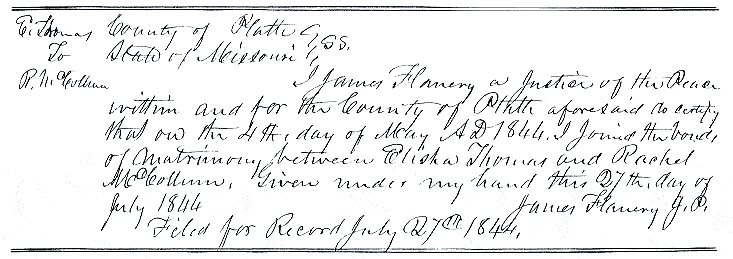 E. Thomas County of Platte } SS.
To State of Missouri }
R. McCollum I James Flanery a Justice of the Peace
within and for the County of Platte aforesaid do certify
that on the 4th, day of May AD 1844. I Joined the bonds
of matrimony between Elisha Thomas and Rachel
McCollum, Given under my hand this 27th, day of
July 1844 James Flanery J.P.
Filed for Record July 27th 1844,